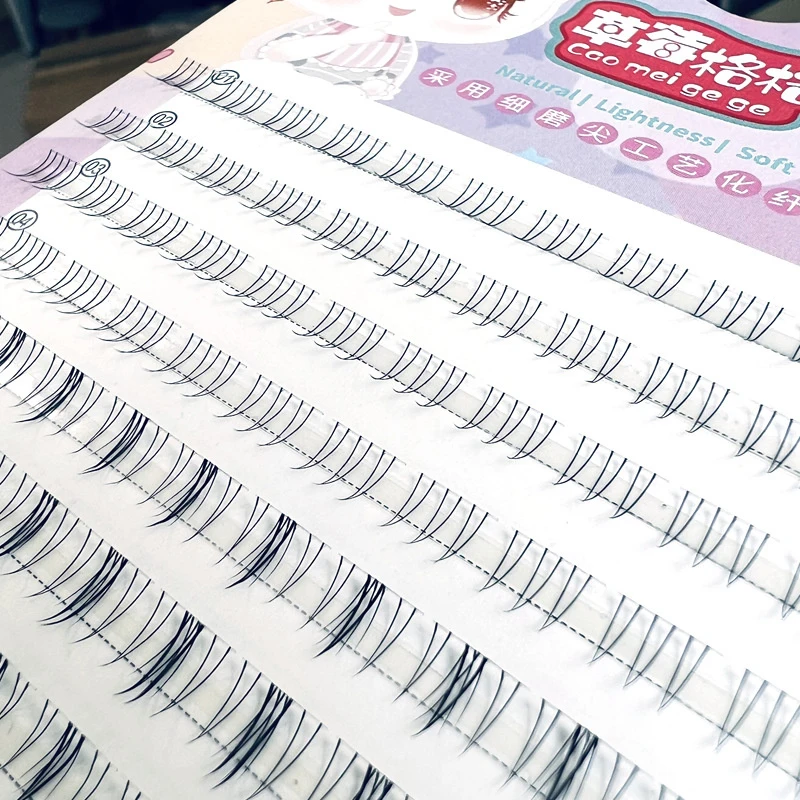 草莓格格
Cao mei ge ge
Natural | Lightness | Soft
采用细磨尖工艺化纤
01
02
03
04